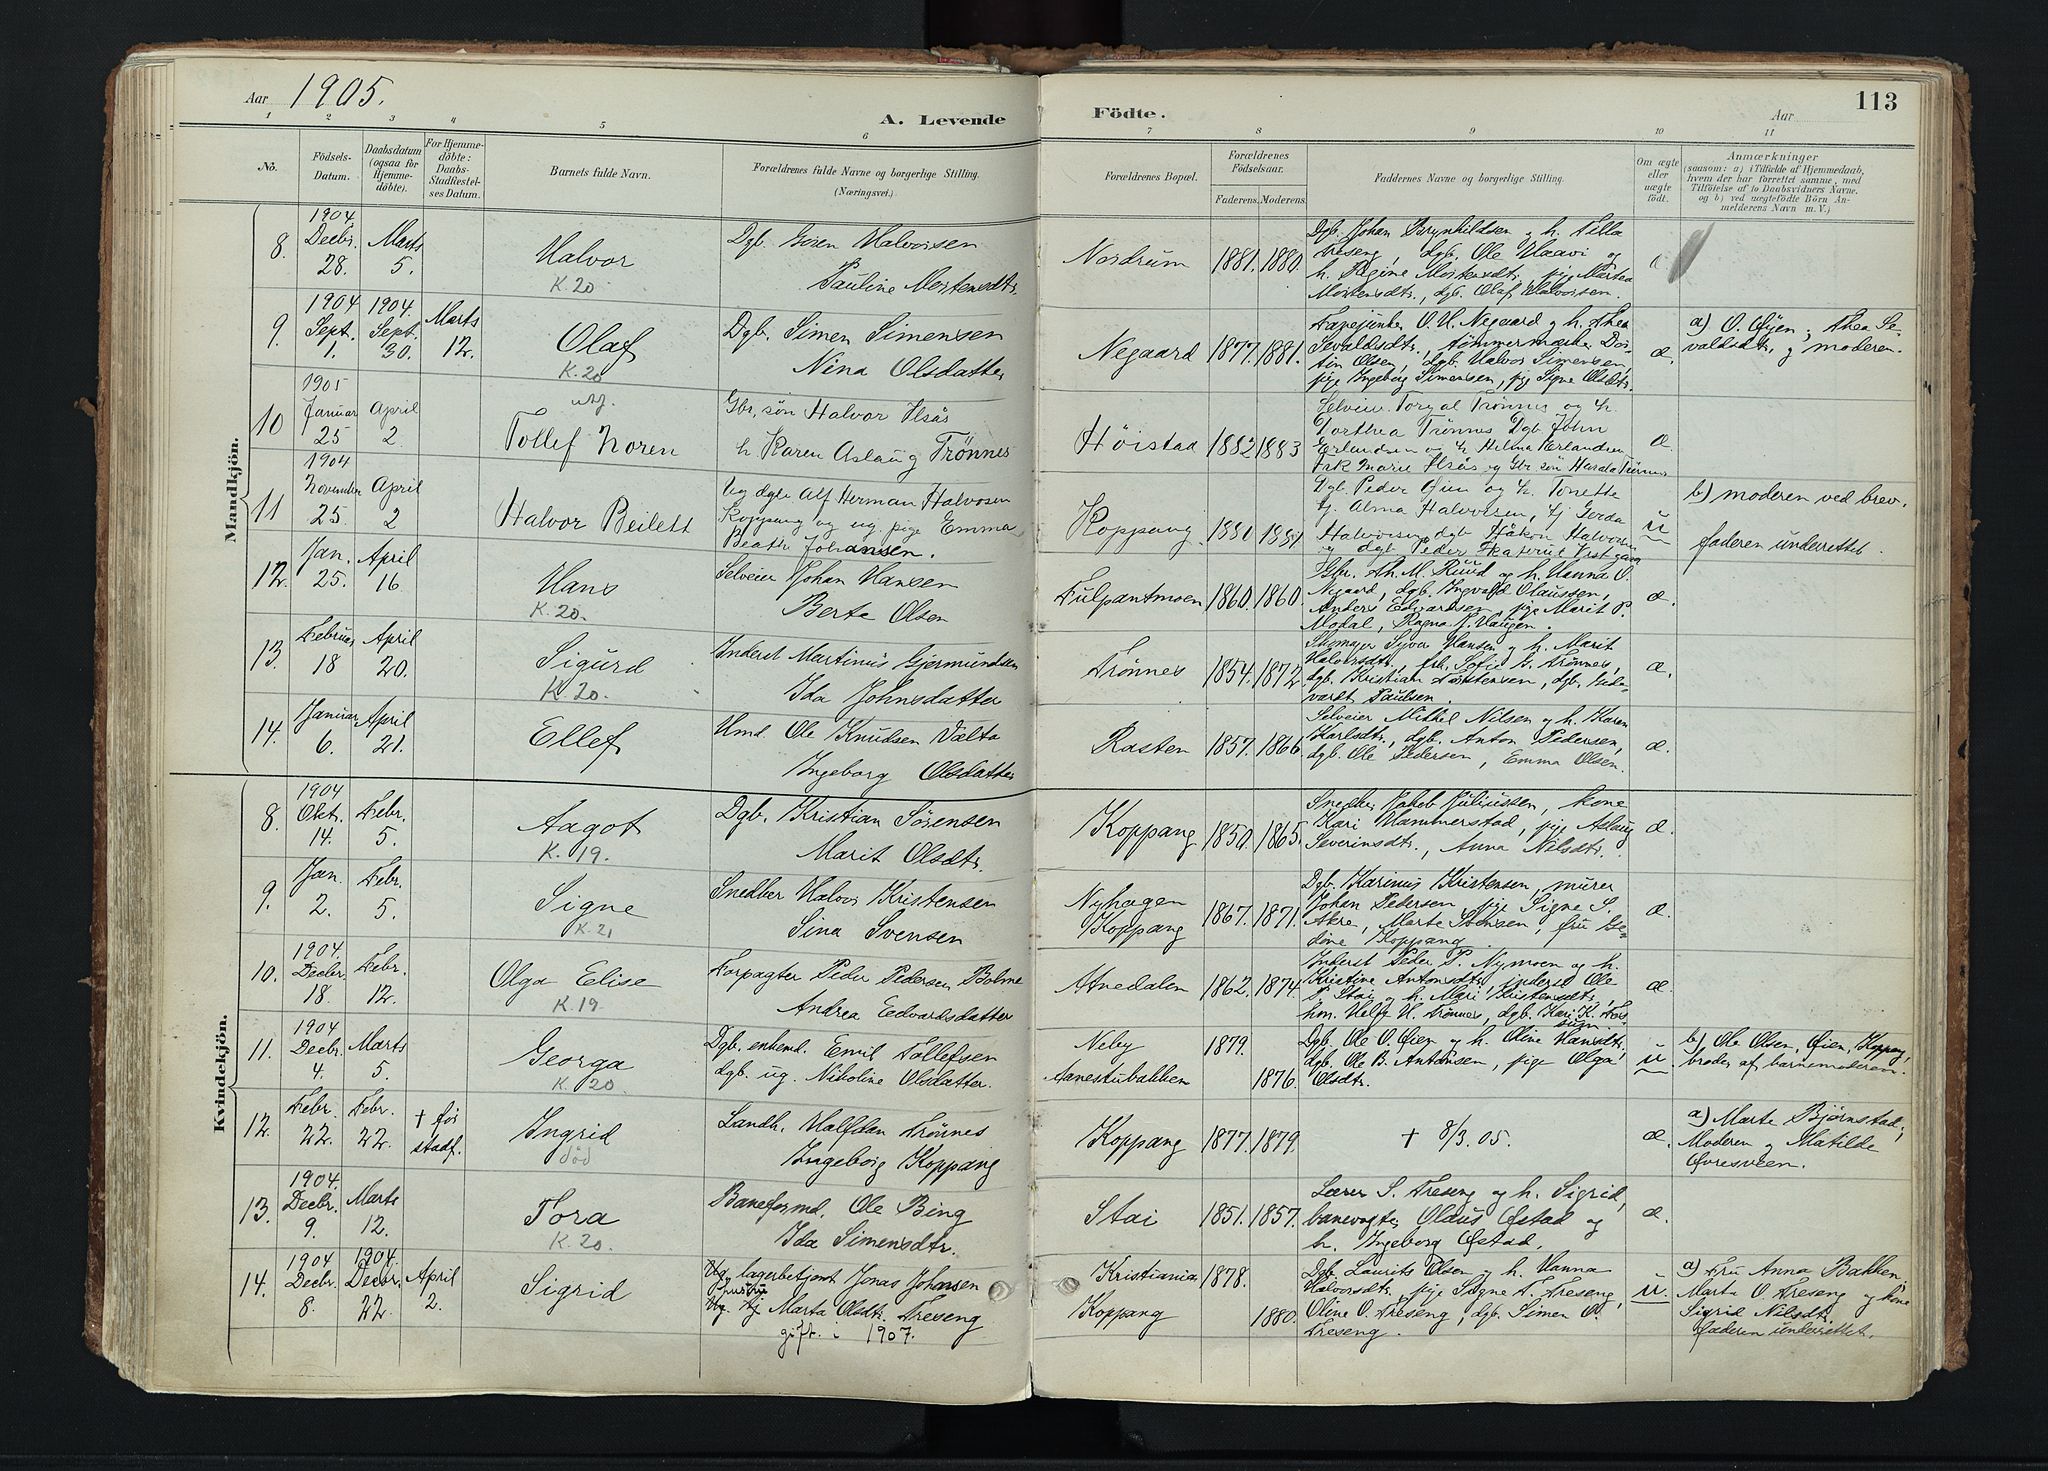 Aar 1905.
A. Levende
Födte.
Aar
113
1 2 3 4 5 6 7 8 9 10 11
No.
Födsels-
Datum.
Daabsdatum
(ogsaa for
Hjemme-
döbte).
For Hjemme-
döbte:
Daabs-
Stadfæstel-
ses Datum.
Barnets fulde Navn.
Forældrenes fulde Navne og borgerlige Stilling.
(Næringsvei.)
Forældrenes Bopæl.
Forældrenes
Födselsaar.
Faderens. Moderens.
Faddernes Navne og borgerlige Stilling.
Om ægte
eller
uægte
födt.
Anmærkninger
(saasom: a) i Tilfælde af Hjemmedaab,
hvem der har forrettet samme, med
Tilföielse af to Daabsvidners Navne.
og b) ved uægtefödte Börn An-
melderens Navn m. V.)
Mandkjön.
8.
1904
Decbr.
28.
Marts
5.
Halvor
K. 20.
Dgb. Halvorsen
Pauline Mortensdtr.
Nordrum
1881. 1880.
Dgb. Johan Brynhildsen og h. Tilla
Treseng, dgb. Ole Haavi og
h. Regine Mortensdtr, pige Marten
Mortensdtr., dgb. Olaf Halvorsen.
9.
1904
Sept.
1.
1904.
Sept.
30.
Marts
12.
Olaf
K. 20
Dgb. Simen Simensen
Nina Olsdatter
Negaard
1877. 1881.
O. H. Negaard og h. Thea
Sevaldsdtr.,
Olsen, dgb. Halvor Simensen,
pige Ingeborg Simensen, pige Signe Olsdtr.
æ.
a) O. Øyen, Thea Se-
valdsdtr. og moderen.
10
1905
Januar
25
April
2
utf.
Tollef Noren
Gbr. søn Halvor Ilsås
h. Karen Aslaug Trönnes
Höistad
1882 1883
Selveier Torgal Trönnes og h.
Dorthea Trönnes Dgb. John
Erlandsen og h Helma Erlandsen
Frk Marie Ilsås og Gbr søn Trönnes
æ
11
1904
November
25.
April
2
Halvor Beilett
Ug dgb Alf Herman Halvorsen
Koppang og ug. pige Emma
Beate Johansen.
Koppang
1880 1881
Dgb. Peder Øien og h. Tonette
tj. Alma Halvorsen, tj Gerda
Halvorsen, dgb Håkon Halvorsen
og dgb Peder Vestgaard
u
b) moderen ved brev.
faderen underrettet.
12.
Jan.
25.
April
16
Hans
K. 20.
Selveier Johan Hansen
Berte Olsen
Fulpantmoen
1860. 1860.
Gbr. Th. M. Ruud og h. Hanna O.
Nygaard, dgb. Ingvald Olaussen,
Anders Edvardsen, pige Marit P.
Modal, Ragna J. Haugen.
æ.
13.
Februar
18
April
20.
Sigurd
K 20.
Inderst Martinus Gjermundsen
Ida Johnsdatter
Trönnes
1854. 1872
Sagmajor Syver Hansen og h. Marit
Halvorsdtr., frk. Sofie G. Trönnes,
dgb. Kristian Torstensen, dgb.
Paulsen.
æ.
14.
Januar
6.
April
21.
Ellef
Hmd. Ole Knudsen Valta
Ingeborg Olsdatter
Rasten
1857. 1866
Selveier Mikkel Nilsen og h. Karen
Karlsdtr., dgb. Anton Pedersen,
dgb. Ole Pedersen, Emma Olsen.
æ.
Kvindekjön.
8.
1904
Okt.
14.
Febr.
5.
Aagot
K. 19.
Dgb. Kristian Sörensen
Marit Olsdtr.
Koppang
1850. 1865.
Snedker Jakob Juliussen, kone
Kari Hammerstad, pige Aslaug
Severinsdtr., Anna Nilsdtr.
æ.
9.
Jan.
2.
Febr.
5.
Signe
K. 21
Snedker Halvor Kristensen
Sina Svensen
Nyhagen
Koppang
1867. 1871.
Dgb. Karinus Kristensen, murer
Johan Pedersen, pige Signe S.
Akre, Marte Stensen, fru
Koppang.
æ.
10.
1904.
Decbr.
18.
Febr.
12.
Olga Elise
K. 19.
Forpagter Peder Pedersen Bolme
Andrea Edvardsdatter
Atnedalen
1862. 1874.
Inderst Peder P. Nymoen og h.
Kristine Antonsdtr, inderst Ole
P. Stai og h. Mari Kristensdtr.,
Helge H. Trönnes, dgb. Kari K. Fos-
sum.
æ.
11.
1904
Decbr.
4.
Marts
5.
Georga
K. 20
Dgb. enkemd. Emil Tollefsen
dgb. ug. Nikoline Olsdatter.
Neby
Aanestubakken
1879.
1876.
Dgb. Ole O. Øien og h. Oline Hansdtr.
dgb. Ole B. Antonsen, pige Olga
Olsdtr.
u
b) Ole Olsen, Øien, Koppang,
broder af barnemoderen.
12.
Febr.
22.
Febr.
22.
† før
stadf.
Ingrid
död
Landh. Halfdan Trönnes
Ingeborg Koppang
Koppang
1877. 1879.
† 8/3. 05.
æ.
a) Marte Bjørnstad,
Moderen og Matilde
Øvresveen.
13.
1904.
Decbr.
9.
Marts
12.
Tora
K. 20.
Baneformd. Ole Bing
Ida Simensdtr.
Stai
1851. 1857.
Lærer S. Treseng og h. Sigrid,
banevogter Olaus Østad og
h. Ingeborg Østad.
æ.
14.
1904
Decbr.
8.
1904.
Decbr.
22.
April
2.
Sigrid
Ug. lagerbetjent Jonas Johansen
Ug. tj Marta Olsdtr. Treseng
gift i 1907.
Kristiania
Koppang
1878.
1880.
Dgb. Laurits Olsen og h. Hanna
Halvorsdtr., pige Signe T. Treseng,
Oline O. Treseng, dgb. Simen O.
Treseng.
u
a) Fru Anna Bakken,
Marta O. Treseng og kone
Sigrid Nilsdtr.
faderen underrettet.